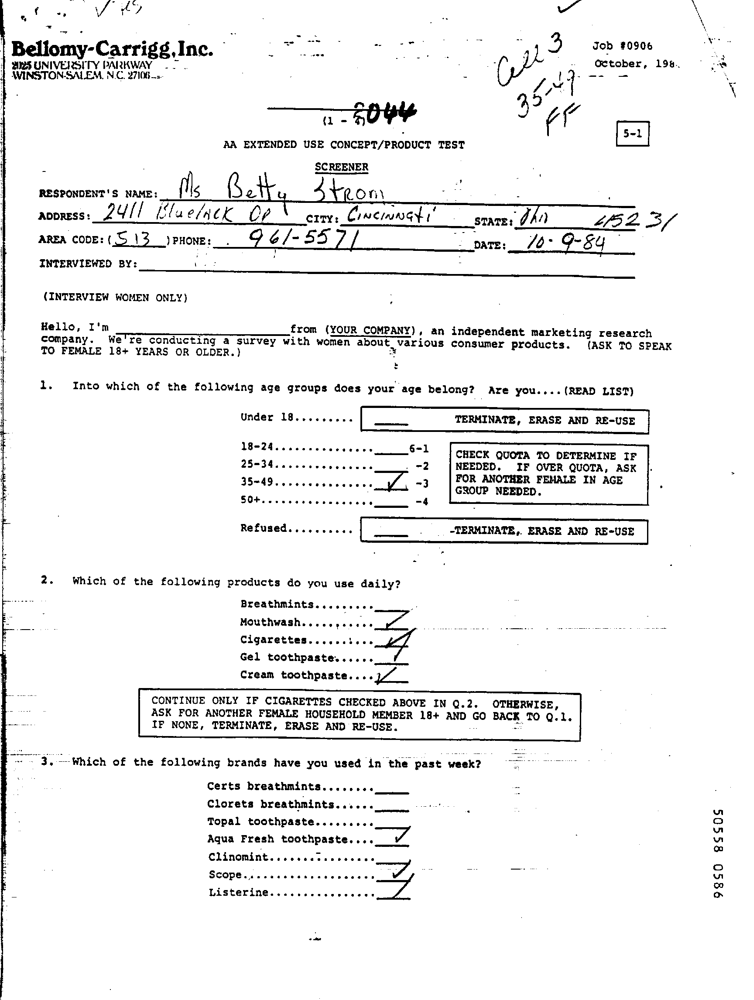 Bellomy-Carrigg, Inc.
2125 UNIVERSITY PARKWAY
WINSTON-SALEM, N.C. 27106
Cell 3
35-49
FF
Job #0906
October, 198
(1 - 5044
5-1
AA EXTENDED USE CONCEPT/PRODUCT TEST
SCREENER
RESPONDENT'S NAME: Ms Betty Strom
ADDRESS: 2411 CITY: Cincinnati STATE: Ohio 45231
AREA CODE: (513) PHONE: 961-5571 DATE: 10-9-84
INTERVIEWED BY:
(INTERVIEW WOMEN ONLY)
Hello, I'm ____ from (YOUR COMPANY), an independent marketing research
company. We're conducting a survey with women about various consumer products. (ASK TO SPEAK
TO FEMALE 18+ YEARS OR OLDER.)
1. Into which of the following age groups does your age belong? Are you....(READ LIST)
Under 18......... ____ TERMINATE, ERASE AND RE-USE
18-24...............____6-1
25-34...............____ -2
35-49...............✓ -3
50+.................____ -4
CHECK QUOTA TO DETERMINE IF
NEEDED. IF OVER QUOTA, ASK
FOR ANOTHER FEMALE IN AGE
GROUP NEEDED.
Refused.......... ____ TERMINATE, ERASE AND RE-USE
2. Which of the following products do you use daily?
Breathmints.........____
Mouthwash...........✓
Cigarettes..........✓
Gel toothpaste......✓
Cream toothpaste....✓
CONTINUE ONLY IF CIGARETTES CHECKED ABOVE IN Q.2. OTHERWISE,
ASK FOR ANOTHER FEMALE HOUSEHOLD MEMBER 18+ AND GO BACK TO Q.1.
IF NONE, TERMINATE, ERASE AND RE-USE.
3. Which of the following brands have you used in the past week?
Certs breathmints........____
Clorets breathmints......____
Topal toothpaste.........____
Aqua Fresh toothpaste....✓
Clinomint................____
Scope....................✓
Listerine................✓
50558 0586